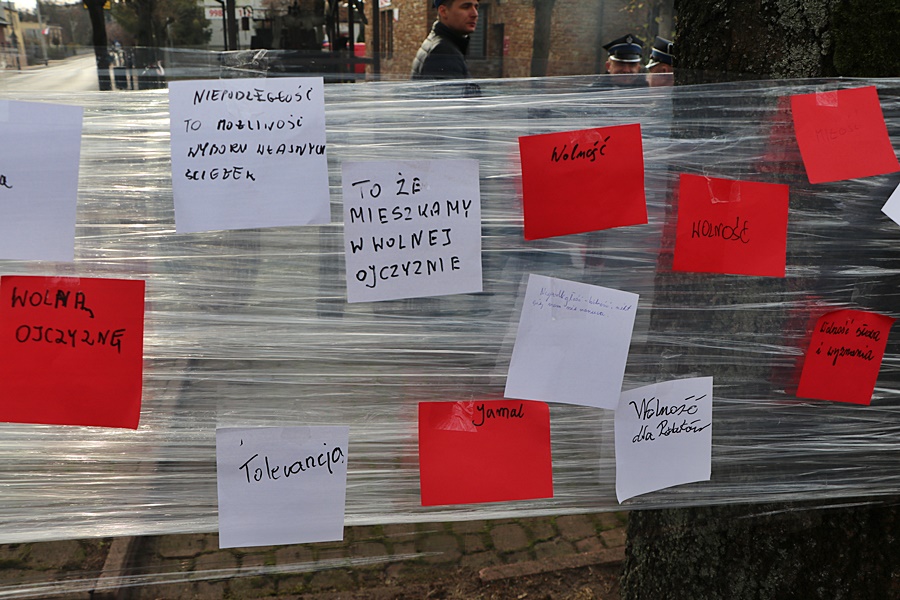 NIEPODLEGŁOŚĆ
TO MOŻLIWOŚĆ
WYBORU WŁASNYCH
ŚCIEŻEK
TO ŻE
MIESZKAMY
W WOLNEJ
OJCZYZNIE
Wolność
WOLNOŚĆ
WOLNĄ
OJCZYZNĘ
i wyznania
Tolerancja
Jamal
Wolność
dla Polaków